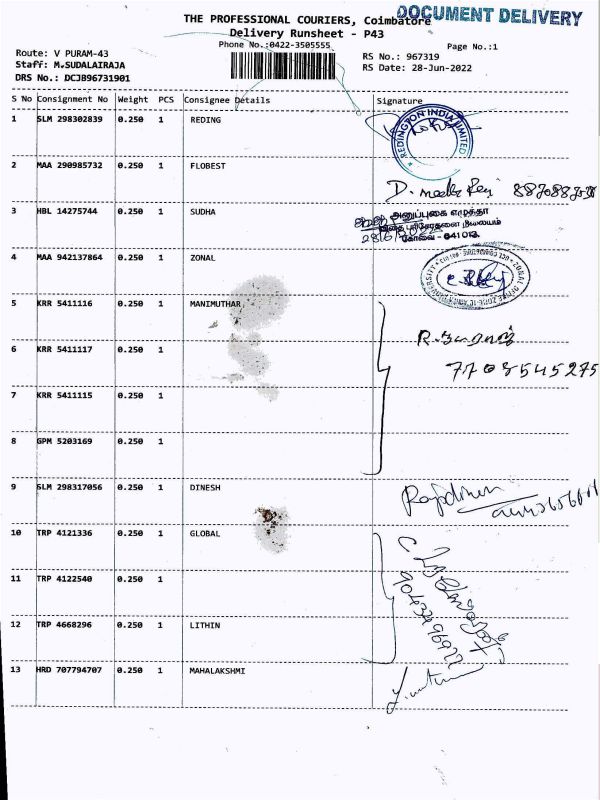 DOCUMENT DELIVERY
THE PROFESSIONAL COURIERS, Coimbatore
Delivery Runsheet - P43
Phone No.:0422-3505555
Page No.:1
Route: V PURAM-43
Staff: M.SUDALAIRAJA
DRS No.: DCJB96731901
RS No.: 967319
RS Date: 28-Jun-2022
S No Consignment No Weight PCS Consignee Details Signature
1 SLM 298302839 0.250 1 REDING
REDINGTON INDIA LIMITED
2 MAA 290985732 0.250 1 FLOBEST
3 HBL 14275744 0.250 1 SUDHA
அனுப்புகை எழுத்தர்
கோவை - 641 013.
4 MAA 942137864 0.250 1 ZONAL
5 KRR 5411116 0.250 1 MANIMUTHAR
7708545275
6 KRR 5411117 0.250 1
7 KRR 5411115 0.250 1
8 GPM 5203169 0.250 1
9 SLM 298317056 0.250 1 DINESH
10 TRP 4121336 0.250 1 GLOBAL
11 TRP 4122540 0.250 1
12 TRP 4668296 0.250 1 LITHIN
13 HRD 707794707 0.250 1 MAHALAKSHMI